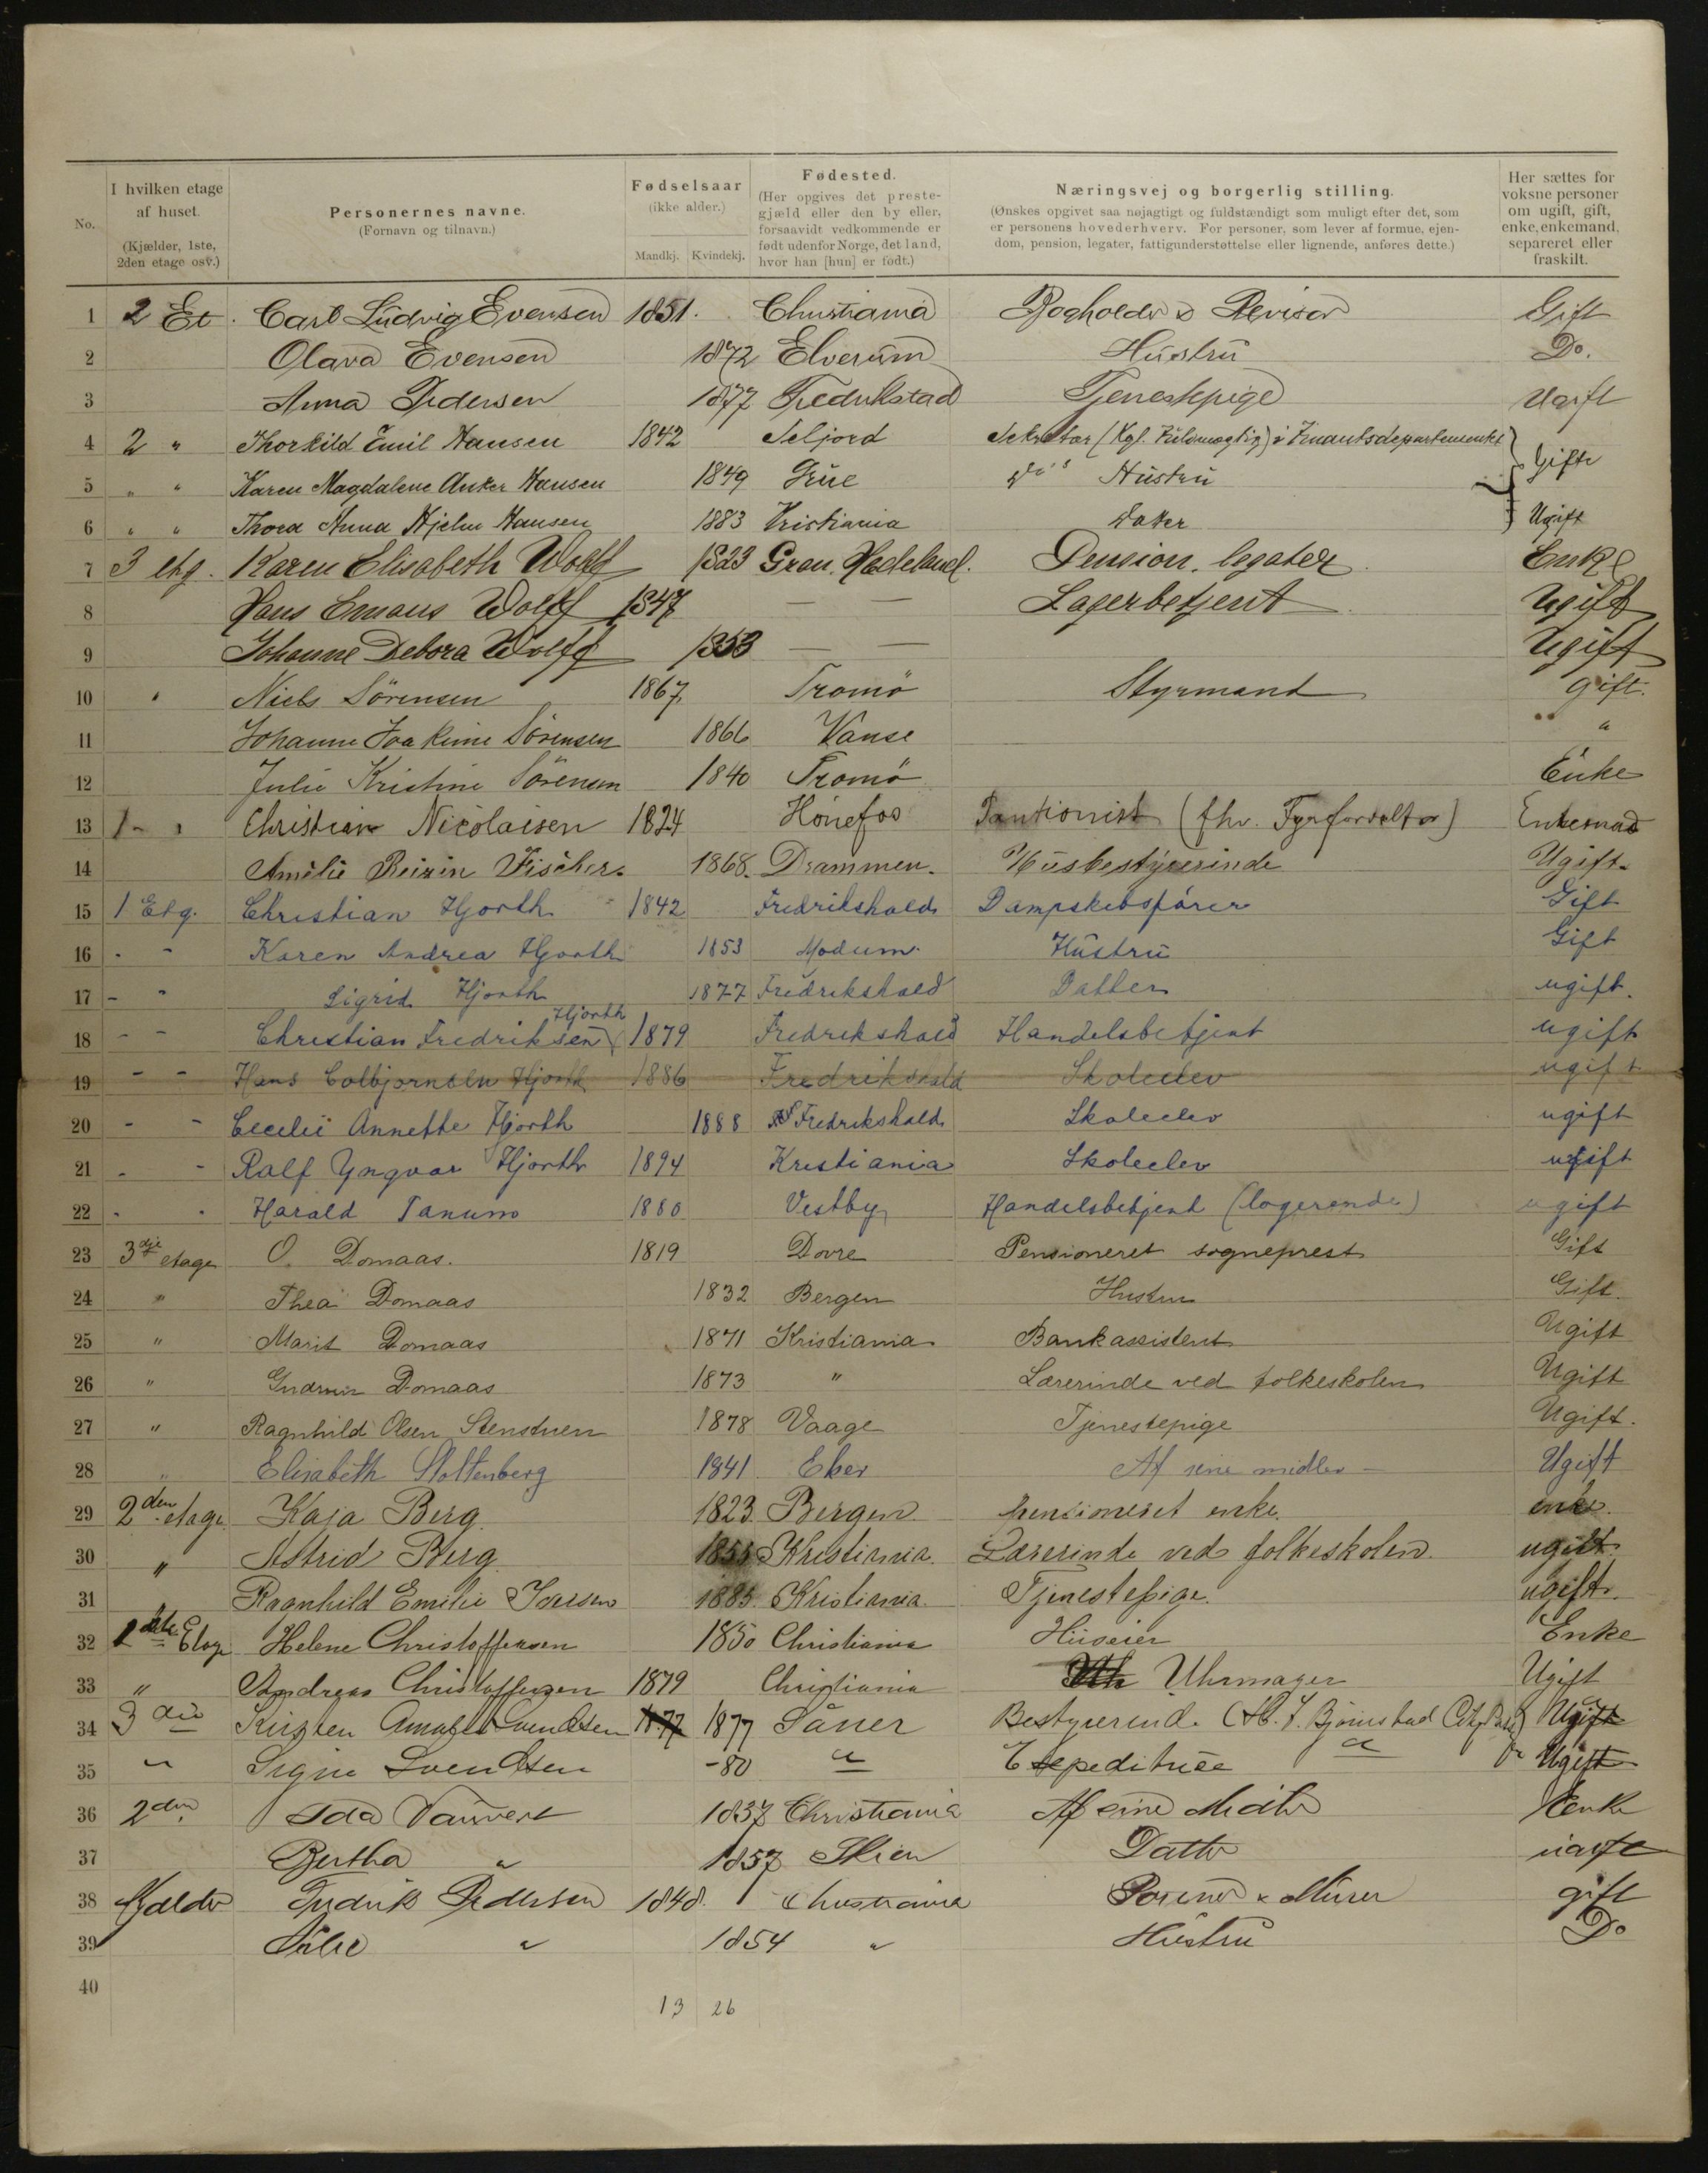 No.
I hvilken etage af huset. (Kjælder, 1ste, 2den etage osv.)
Personernes navne. (Fornavn og tilnavn.)
Fødselsaar (ikke alder.) Mandkj. Kvindekj.
Fødested. (Her opgives det prestegjæld eller den by eller, forsaavidt vedkommende er født udenfor Norge, det land, hvor han [hun] er født.)
Næringsvej og borgerlig stilling. (Ønskes opgivet saa nøjagtigt og fuldstændigt som muligt efter det, som er personens hovederhverv. For personer, som lever af formue, ejendom, pension, legater, fattigunderstøttelse eller lignende, anføres dette.)
Her sættes for voksne personer om ugift, gift, enke, enkemand, separeret eller fraskilt.
1 2 Et. Carl Ludvig Evensen 1851. Christiania Bogholder & Revisor Gift
2 Olava Evensen 1872 Elverum Hustru Do.
3 Anna Pedersen 1877 Fredrikstad Tjenestepige Ugift
4 2 " Thorkild Emil Hansen 1842 Seljord Sekretær (Kgl. Fuldmægtig) i Finantsdepartementet } Gifte
5 " " Karen Magdalene Anker Hansen 1849 Grue Hustru
6 " " Thora Anna Hjelm Hansen 1883 Kristiania Datter Ugift
7 3 etg. Karen Elisabeth Wolff 1823 Gran. Hadeland. Pension. legater Enke
8 Hans Emaus Wolff 1847 — — Lagerbetjent Ugift
9 Johanne Debora Wolff 1853 — — Ugift
10 " Niels Sörensen 1867 Tromö Styrmand gift.
11 Johanne Joakime Sörensen 1866 Vanse "
12 Julie Kristine Sörensen 1840 Tromö Enke
13 1 - " Christian Nicolaisen 1824 Hönefos Pantionist (fhv. Fyrforvalter) Enkemad
14 Amelie Reizin Fischer. 1868. Drammen. Husbestyrerinde Ugift.
15 1 Etg. Christian Hjorth 1842 Fredrikshald Dampskibsfører Gift
16 - - Karen Andrea Hjorth 1853 Modum Hustru Gift
17 - " Sigrid Hjorth 1877 Fredrikshald Datter ugift.
18 - - Christian Fredriksen Hjorth 1879 Fredrikshald Handelsbetjent ugift
19 - - Hans Colbjørnsen Hjorth 1886 Fredrikshald Skoleelev ugift
20 - - Cecelie Annette Hjorth 1888 Fredrikshald Skoleelev ugift
21 - - Ralf Yngvar Hjorth 1894 Kristiania Skoleelev ugift
22 - - Harald Tanum 1880 Vestby Handelsbetjent (logerende) ugift
23 3dje etage O. Domaas. 1819 Dovre Pensioneret sogneprest Gift
24 " Thea Domaas 1832 Bergen Hustru Gift.
25 " Marit Domaas 1871 Kristiania Bankassistent Ugift
26 " Gudrun Domaas 1873 " Lærerinde ved folkeskolen Ugift
27 " Ragnhild Olsen Stenstuen 1878 Vaage Tjenestepige Ugift.
28 " Elisabeth Stoltenberg 1841 Eker Af sine midler — Ugift
29 2den etage Kaja Berg. 1823. Bergen pensioneret enke. enke.
30 " Astrid Berg. 1855 Kristiania. Lærerinde ved folkeskolen. ugift.
31 Ragnhild Emilie Iversen 1885. Kristiania. Tjenestepige. ugift.
32 1ste Etage Helene Christoffersen 1850 Christiania Huseier Enke
33 " Andreas Christoffersen 1879 Christiania Uhrmager Ugift
34 3die Kirsten Svendsen 1877 1877 Såner Bestyrerind. Ugift
35 " Signe Svendsen -80 " Expeditrice " Ugift
36 2den Ida Vauvert 1837 Christiania Af sine Midler Enke
37 Bertha " 1857 Skien Datter ugift
38 Kjælder Fredrik Pedersen 1848. Christiania Murer gift
39 Julie " 1854 " Hustru Do
40
13 26